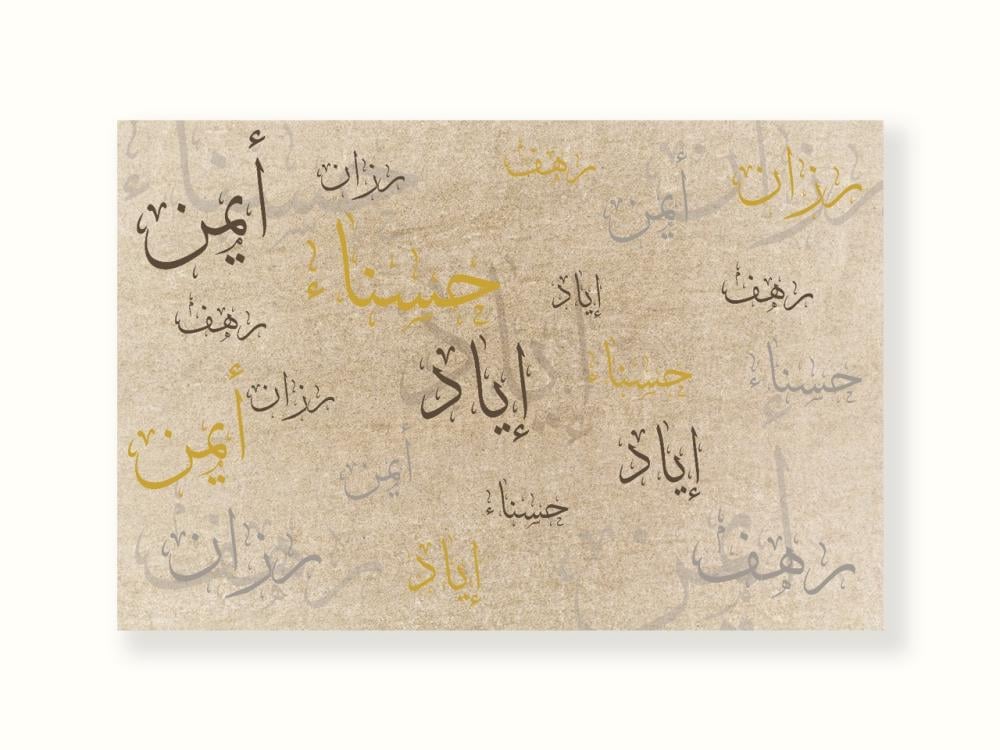 أيمن
رزان
رهف
أيمن
رزان
حسناء
إياد
رهف
رهف
إياد
حسناء
حسناء
أيمن
رزان
أيمن
إياد
حسناء
رزان
إياد
رهف
حسناء
رزان
إياد
رهف
أيمن